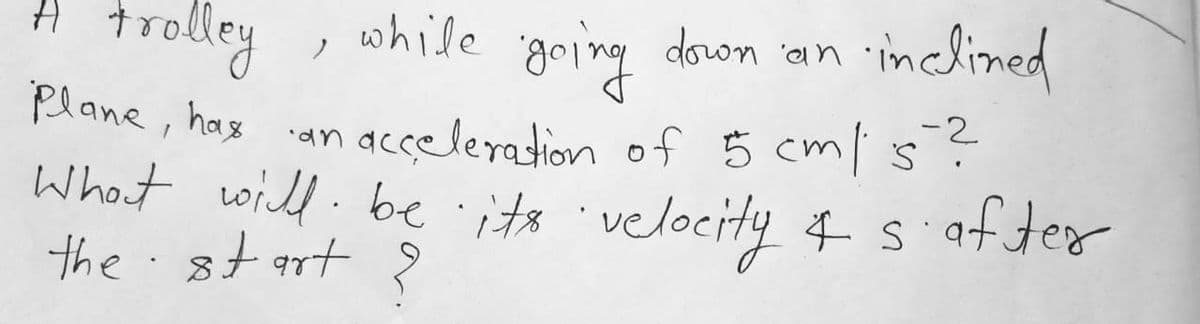 A trolley , while going down an inclined
Plane , has an acceleration of 5 cm/ s⁻².
What will be its velocity 4 s after
the start ?